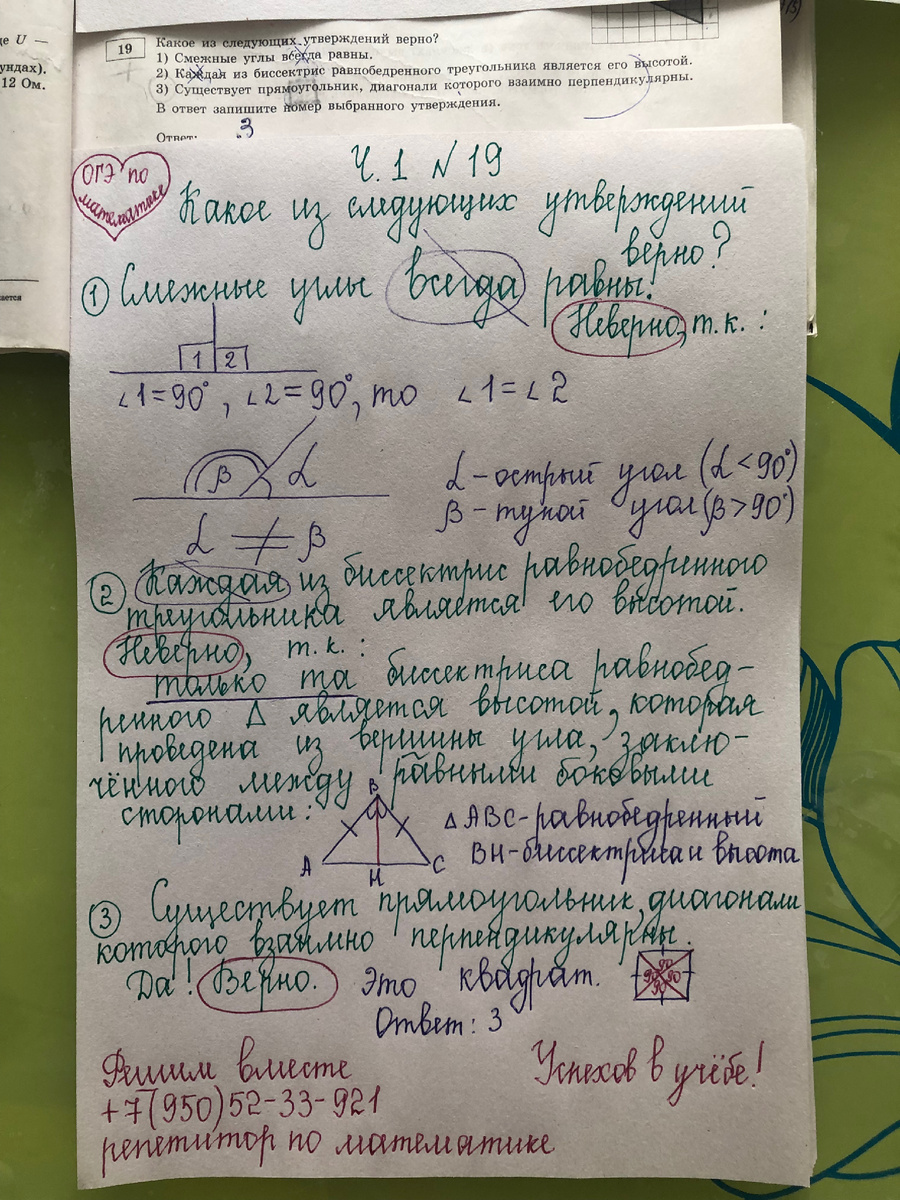 де U —
ундах).
12 Ом.
19
Какое из следующих утверждений верно?
1) Смежные углы всегда равны.
2) Каждая из биссектрис равнобедренного треугольника является его высотой.
3) Существует прямоугольник, диагонали которого взаимно перпендикулярны.
В ответ запишите номер выбранного утверждения.
Ответ: 3
ается
ОГЭ по
математике
Ч.1 №19
Какое из следующих утверждений
верно?
1 Смежные углы всегда равны!
Неверно, т.к.:
1 2
∠1=90°, ∠2=90°, то ∠1=∠2
β α
α - острый угол (α<90°)
β - тупой угол (β>90°)
α ≠ β
2 Каждая из биссектрис равнобедренного
треугольника является его высотой.
Неверно, т.к.:
только та биссектриса равнобед-
ренного Δ является высотой, которая
проведена из вершины угла, заклю-
чённого между равными боковыми
сторонами:
B
A H C
Δ ABC-равнобедренный
BH-биссектриса и высота
3 Существует прямоугольник, диагонали
которого взаимно перпендикулярны.
Да! Верно. Это квадрат.
90
90 90
90
Ответ: 3
Решим вместе
+7(950)52-33-921
репетитор по математике
Успехов в учёбе!